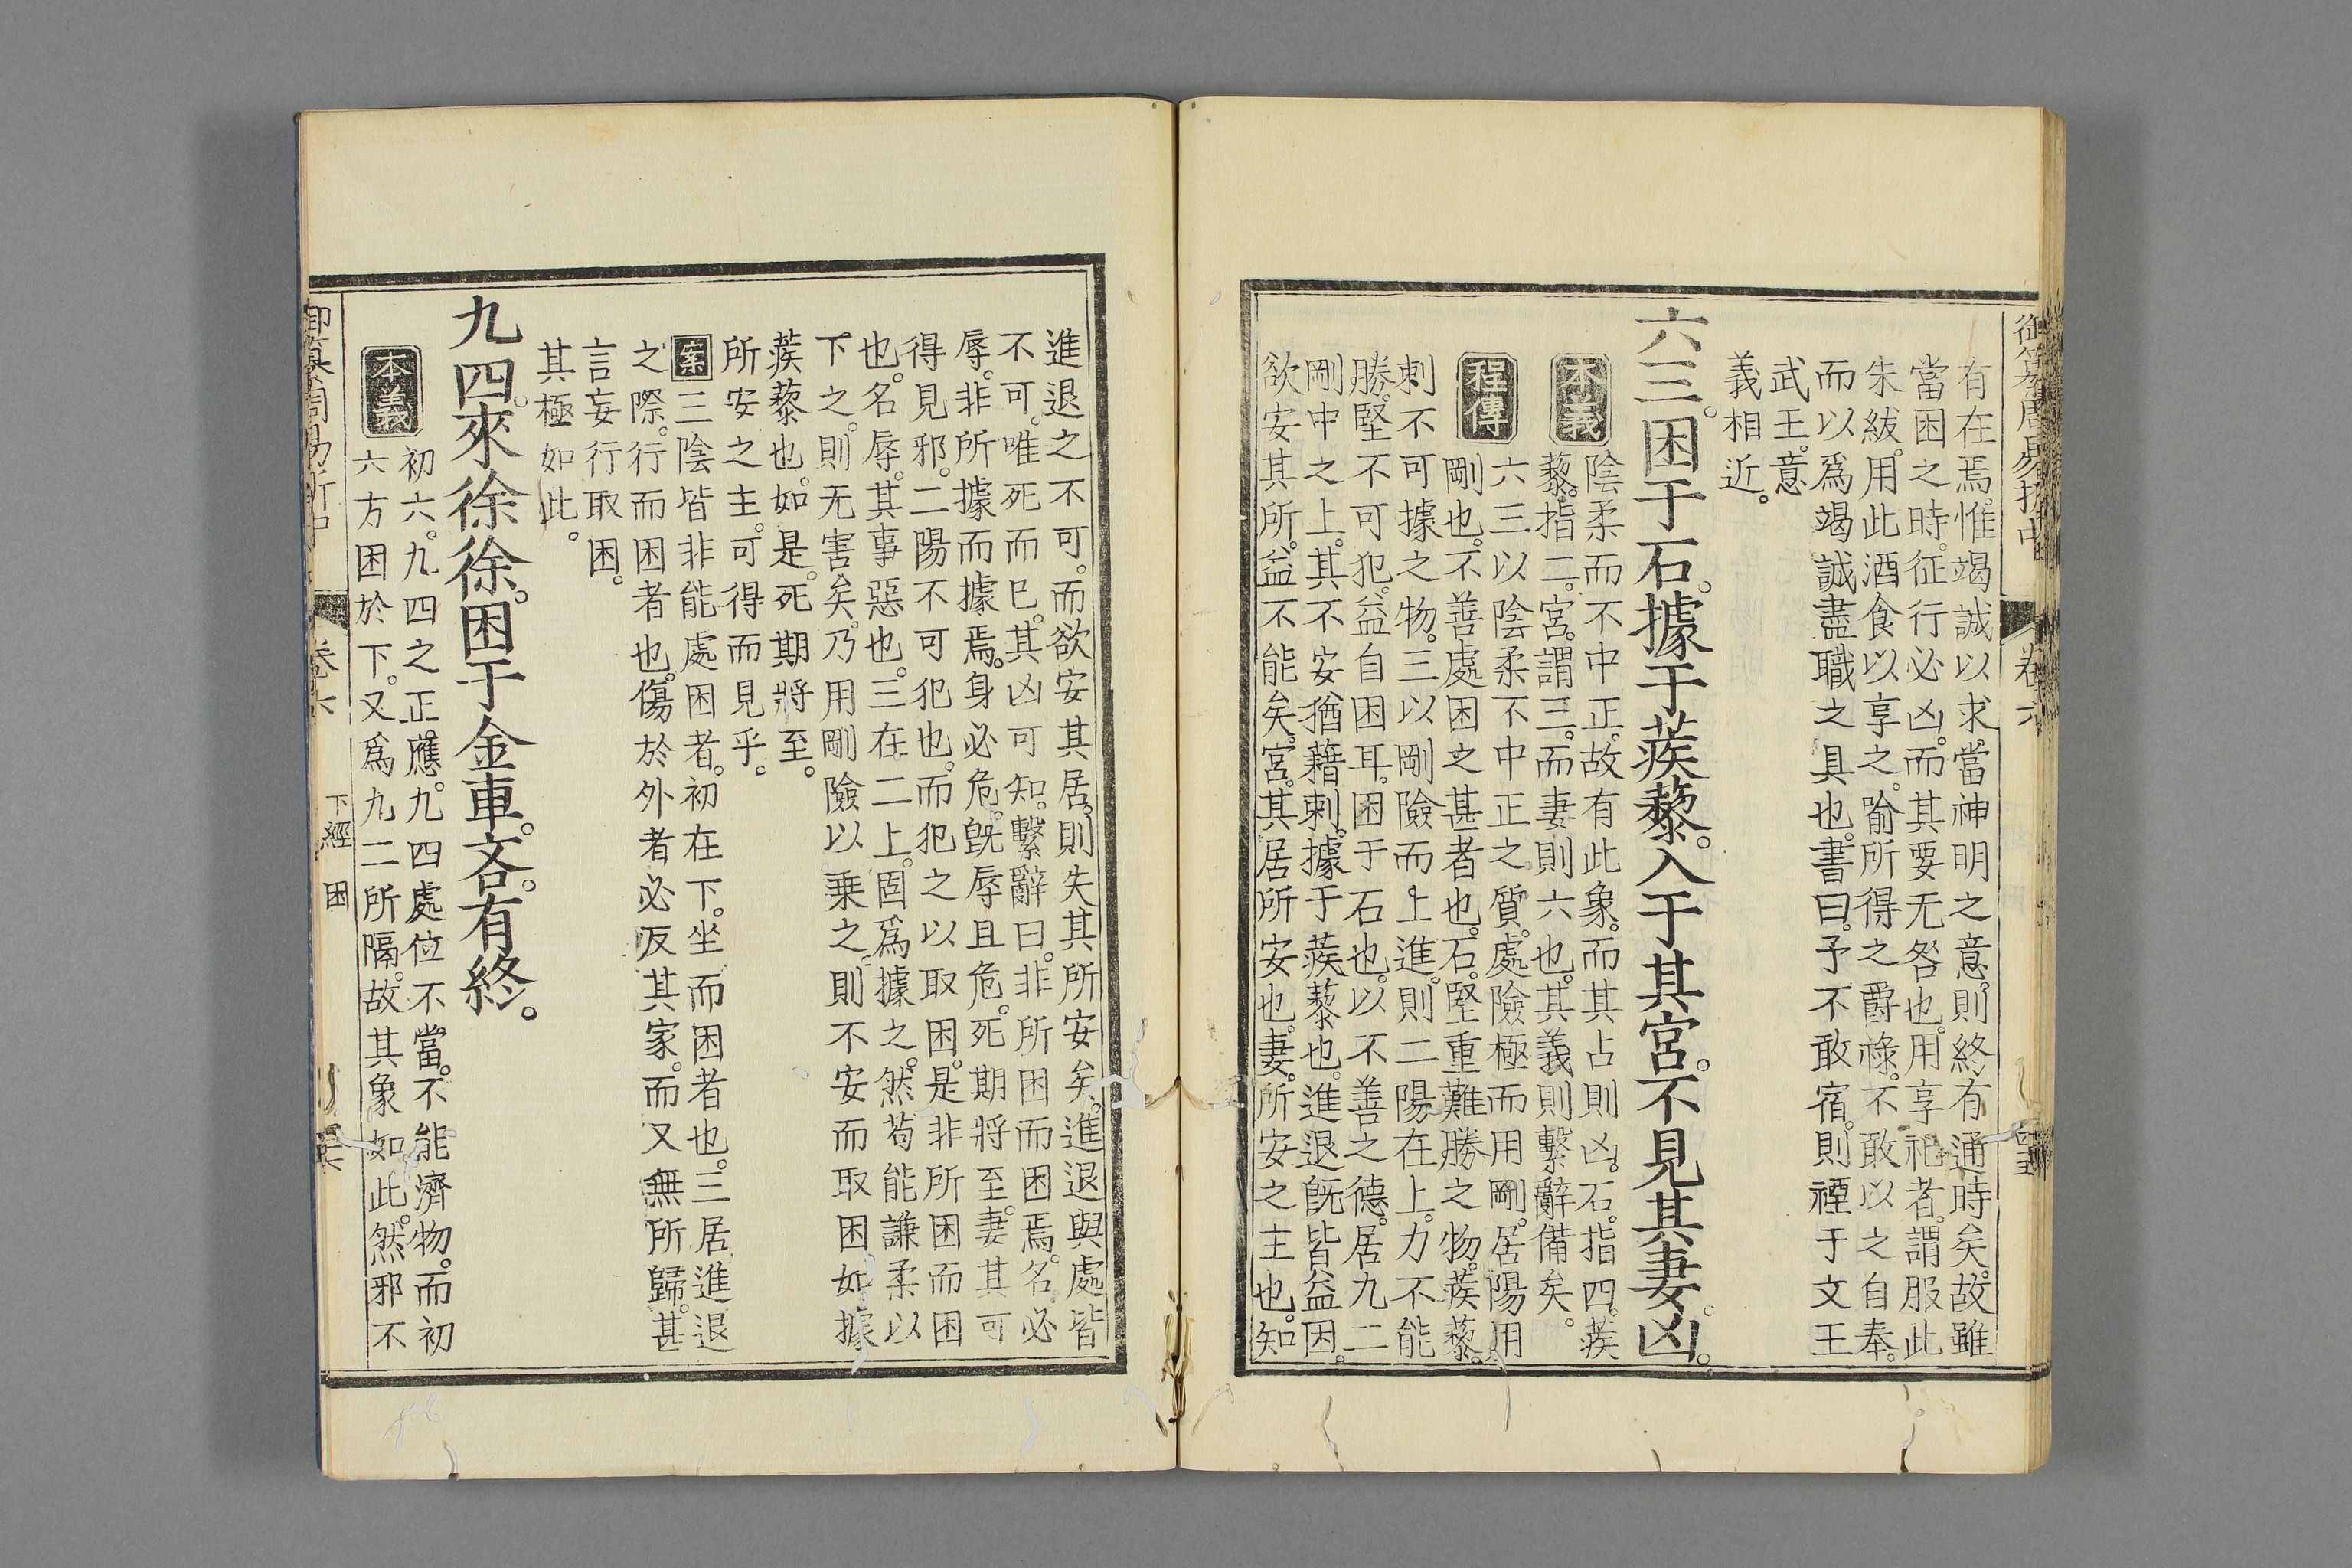 有在焉。惟竭誠以求。當神明之意。則終有通時矣。故雖
當困之時。征行必凶。而其要无咎也。用享祀者。謂服此
朱紱。用此酒食以享之。喻所得之爵祿。不敢以之自奉。
而以爲竭誠盡職之具也。書曰。予不敢宿。則禋于文王
武王。意
義相近。
六三。困于石。據于蒺藜。入于其宮。不見其妻。凶。
本義
陰柔而不中正。故有此象。而其占則凶。石。指四。蒺
藜。指二。宮。謂三。而妻則六也。其義則繫辭備矣。
程傳
六三以陰柔不中正之質。處險極而用剛。居陽用
剛也。不善處困之甚者也。石。堅重難勝之物。蒺藜。
刺不可據之物。三以剛險而上進。則二陽在上。力不能
勝。堅不可犯。益自困耳。困于石也。以不善之德。居九二
剛中之上。其不安猶藉刺。據于蒺藜也。進退旣皆益困。
欲安其所。益不能矣。宮。其居所安也。妻。所安之主也。知
進退之不可。而欲安其居。則失其所安矣。進退與處皆
不可。唯死而已。其凶可知。繫辭曰。非所困而困焉。名必
辱。非所據而據焉。身必危。旣辱且危。死期將至。妻其可
得見邪。二陽不可犯也。而犯之以取困。是非所困而困
也。名辱。其事惡也。三在二上。固爲據之。然苟能謙柔以
下之。則无害矣。乃用剛險以乘之。則不安而取困如據
蒺藜也。如是。死期將至。
所安之主。可得而見乎。
案 三陰皆非能處困者。初在下。坐而困者也。三居進退
之際。行而困者也。傷於外者必反其家。而又無所歸。甚
言妄行取困。
其極如此。
九四。來徐徐。困于金車。吝。有終。
本義
初六。九四之正應。九四處位不當。不能濟物。而初
六方困於下。又爲九二所隔。故其象如此。然邪不
卷六
下經
困